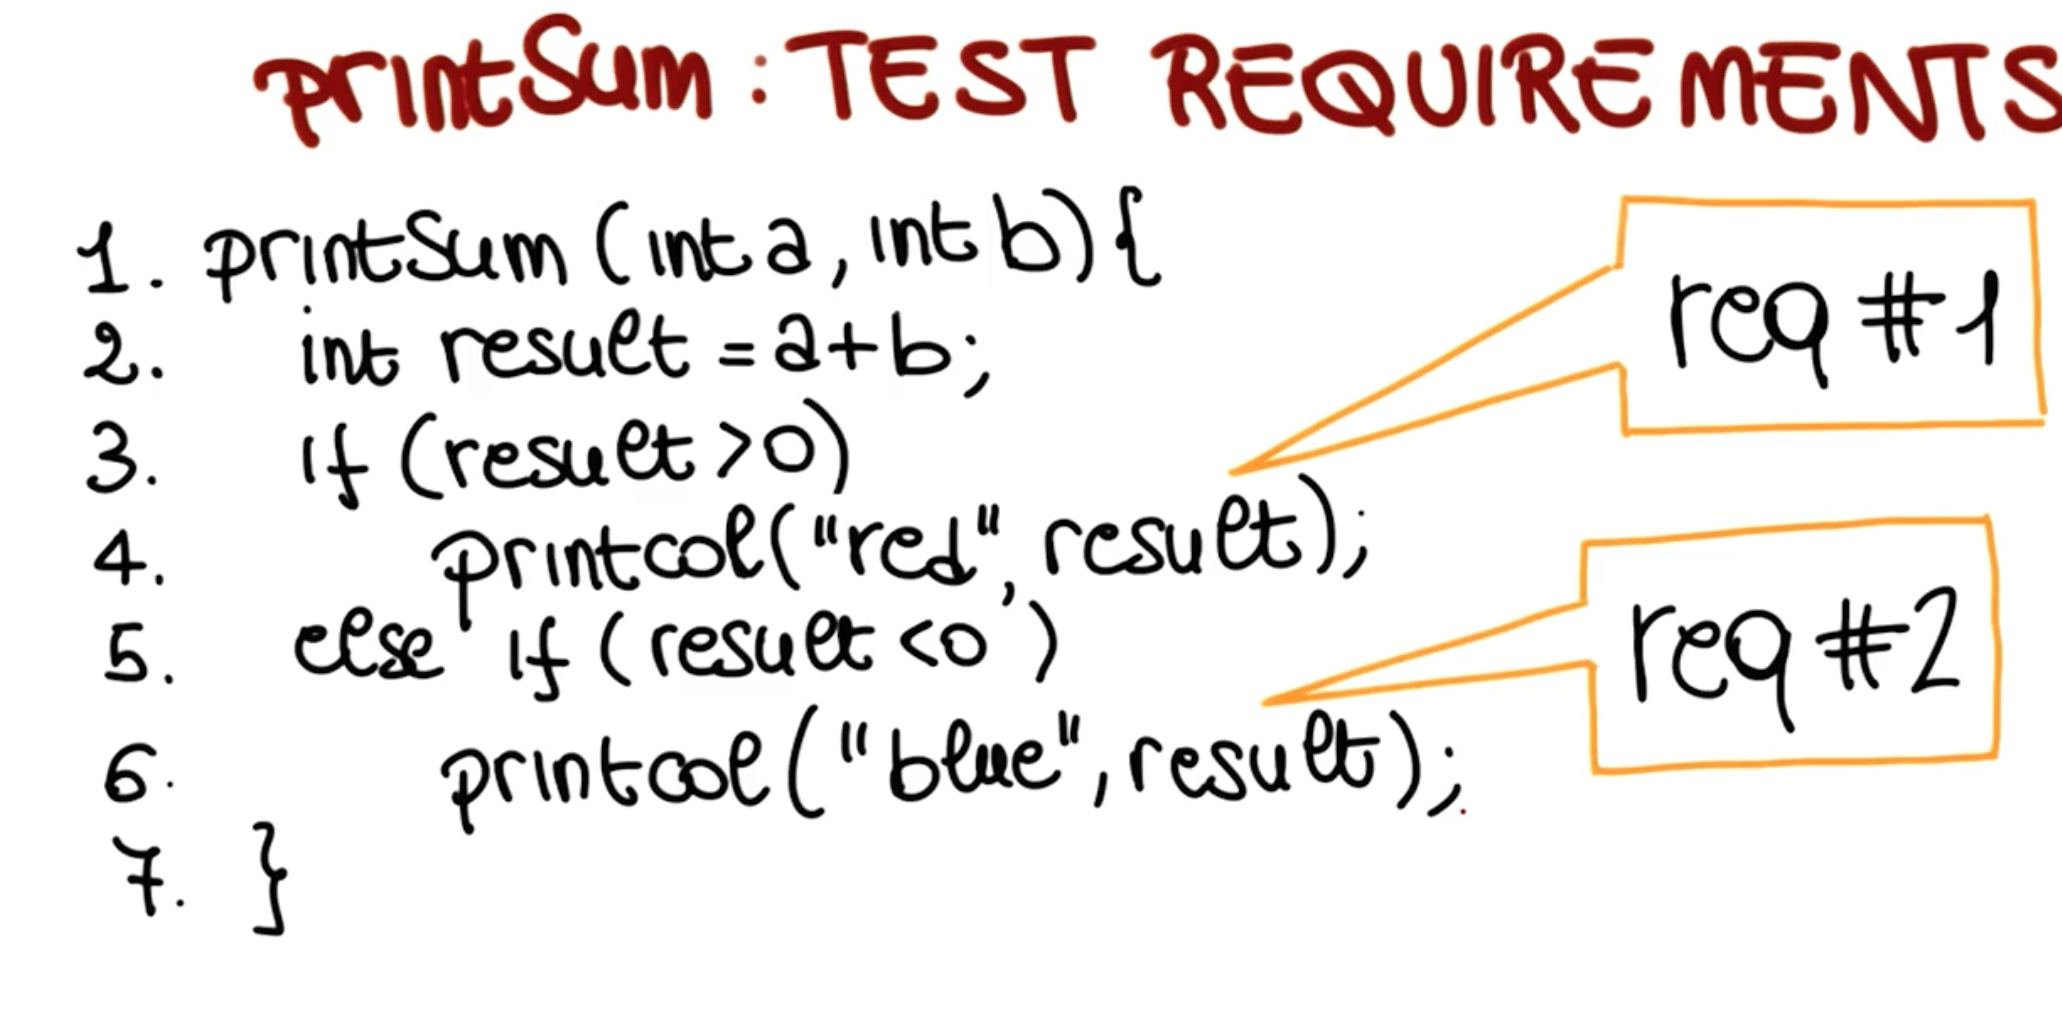 printSum : TEST REQUIREMENTS
1. printSum (int a, int b) {
2. int result = a+b;
3. if (result >0)
4. printcol("red", result);
5. else if (result <0 )
6. printcol("blue", result);
7. }
req #1
req #2